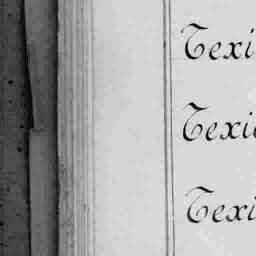 Texi
Texi
Texi